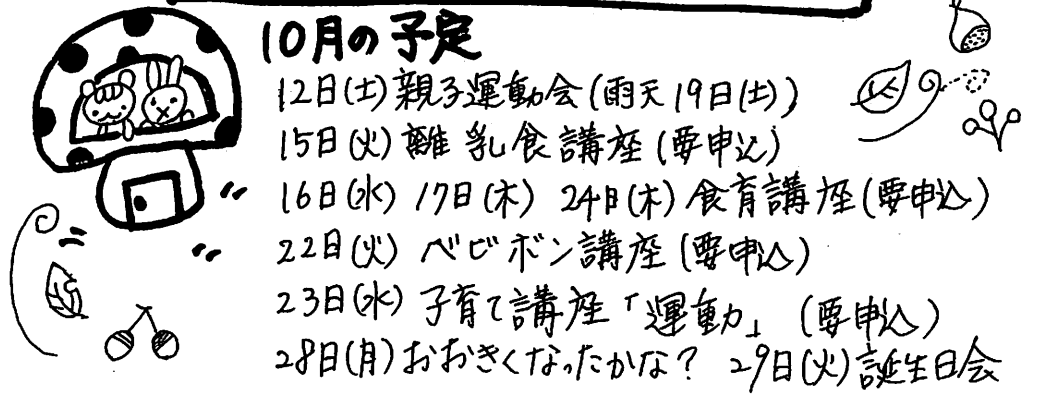 10月の予定
12日(土)親子運動会(雨天19日(土))
15日(火)離乳食講座(要申込)
16日(水)17日(木) 24日(木)食育講座(要申込)
22日(火) ベビボン講座(要申込)
23日(水)子育て講座「運動」(要申込)
28日(月)おおきくなったかな? 29日(火)誕生日会